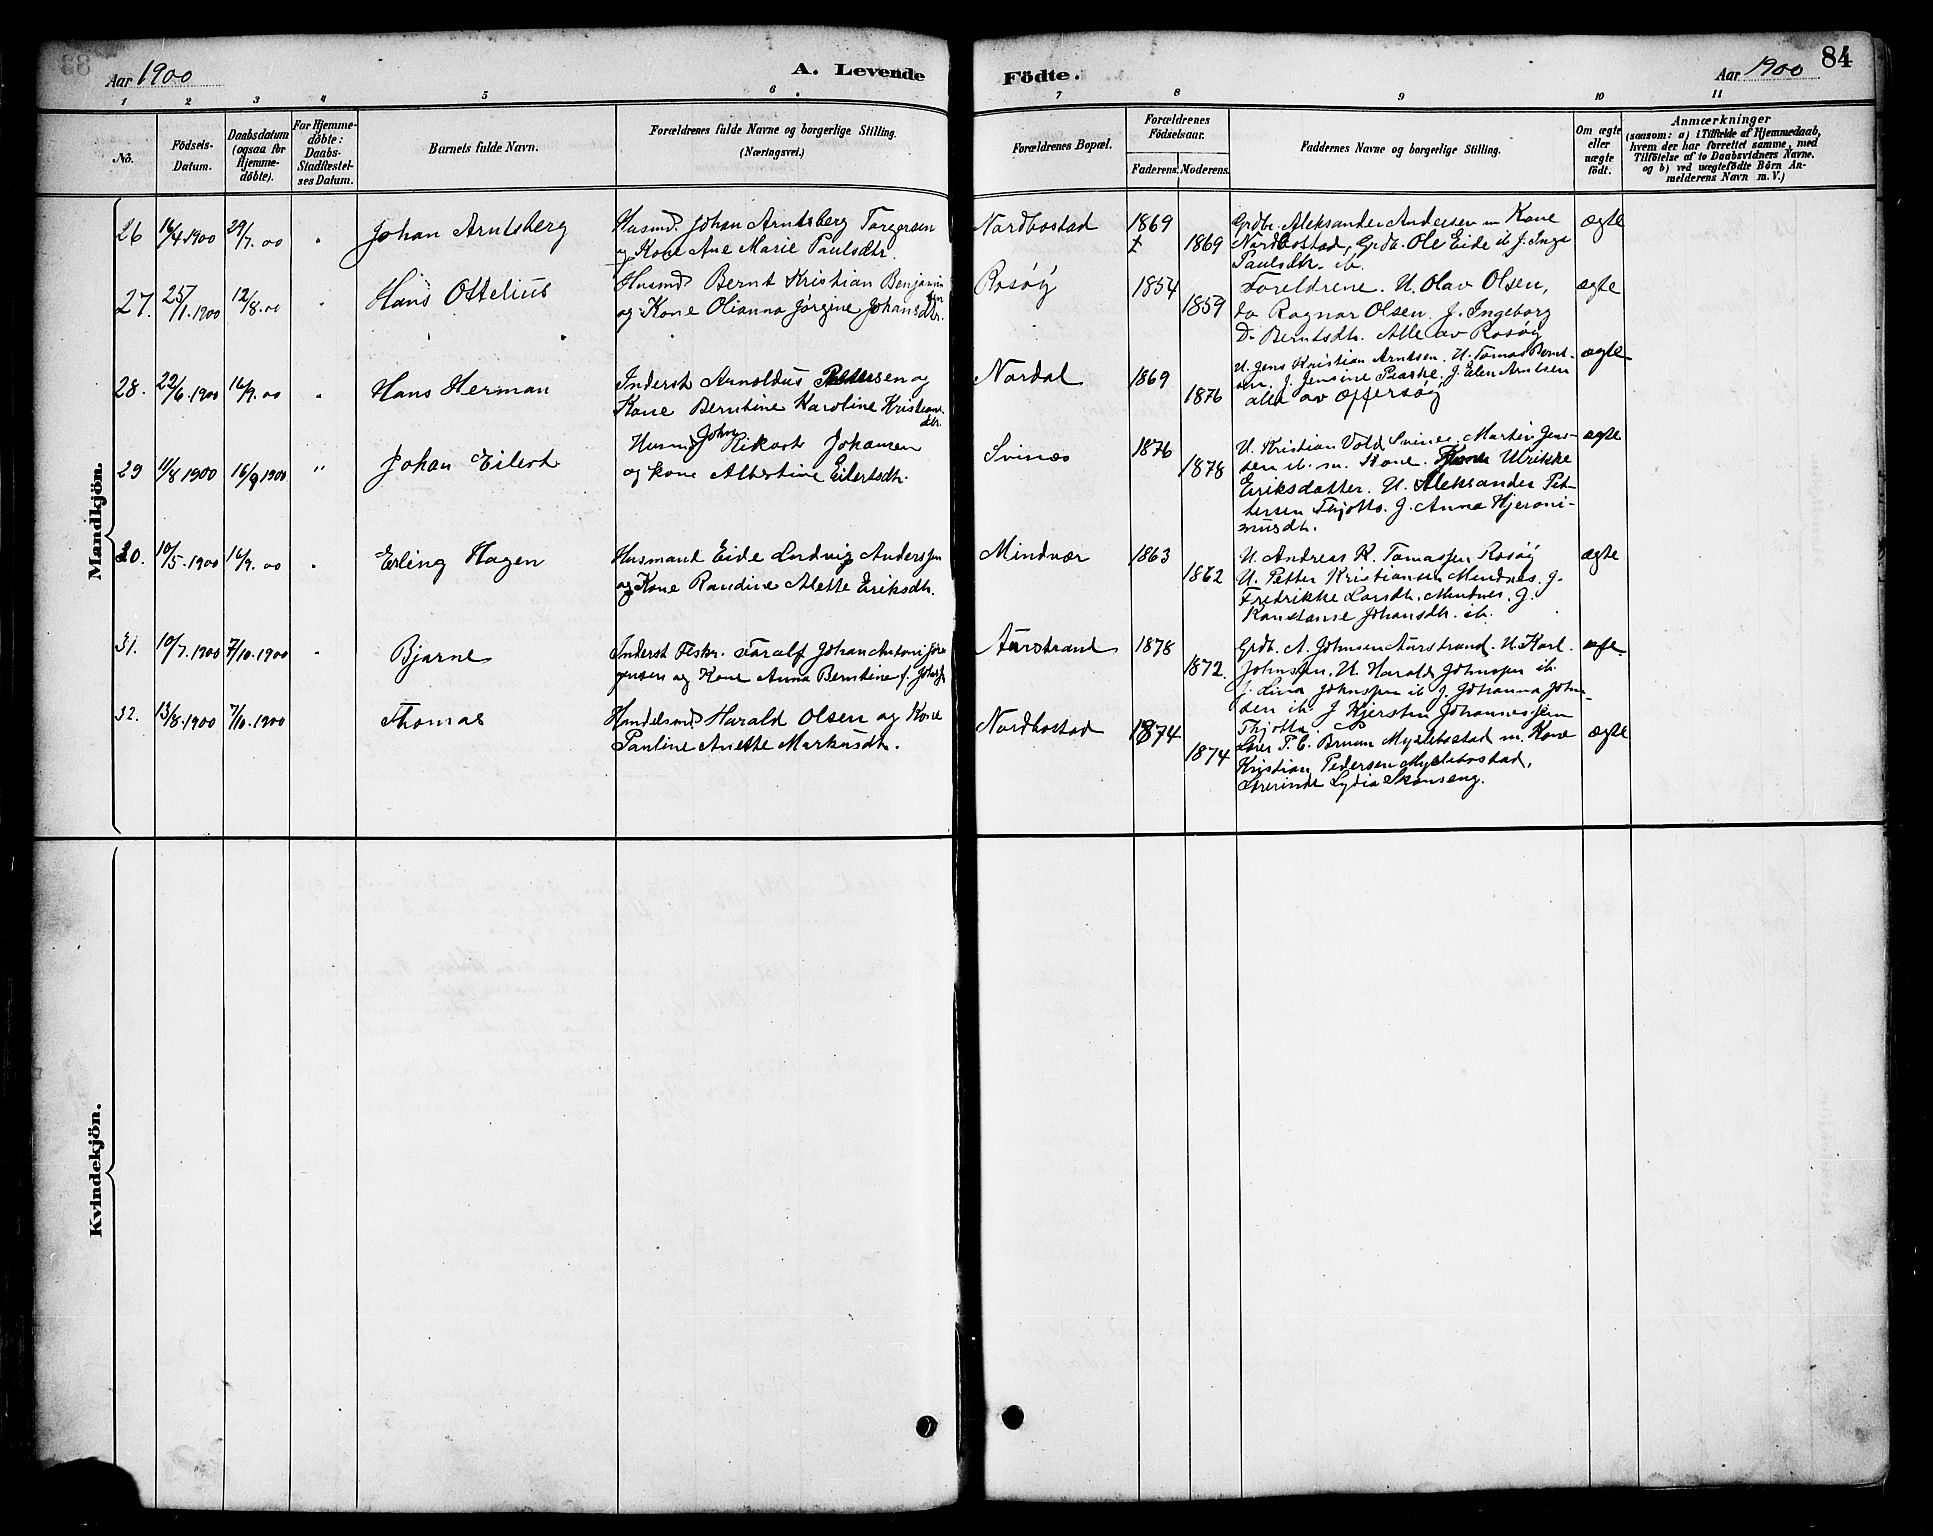 Aar 1900
A. Levende
Födte.
Aar 1900
84
1 2 3 4 5 6 7 8 9 10 11
No.
Födsels-Datum.
Daabsdatum (ogsaa for Hjemme-döbte).
For Hjemme-döbte: Daabs-Stadfæstel-ses Datum.
Barnets fulde Navn.
Forældrenes fulde Navne og borgerlige Stilling.
(Næringsvei.)
Forældrenes Bopæl.
Forældrenes Födselsaar.
Faderens. Moderens.
Faddernes Navne og borgerlige Stilling.
Om ægte eller uægte födt.
Anmærkninger
(saasom: a) i Tilfælde af Hjemmedaab,
hvem der har forrettet samme, med
Tilföielse af to Daabsvidners Navne.
og b) ved uægtefödte Börn An-
melderens Navn m. V.)
Mandkjön.
26 16/4.1900 29/7.00 " Johan Arntsberg
Husmd. Johan Arntsberg Torgersen
og Kone Ane Marie Paulsdtr.
Nordbostad 1869 1869
Grdb. Aleksander Andersen m Kone
Nordbostad, Grdb. Ole Eide ib J. Inga
Paulsdtr. ib.
ægte
27. 25/1.1900 12/8.00 " Hans Ottelius
Husmd Bernt Kristian Benjamin
sen
og Kone Olianna Jørgine Johansdtr.
Rosøy 1854 1859
Foreldrene. U. Olav Olsen,
do Ragnar Olsen. J. Ingeborg
D. Berntsdtr. Alle av Rosøy
ægte
28. 22/6.1900 16/9.00 " Hans Herman
Inderst Arnoldus Pettersen og
Kone Berntine Karoline Kristians
dtr.
Nordal 1869 1876
U. Jens Kristian Arntsen. U. Tomas Bernt-
sen. J. Jensine J. Elen Arntsen
alle av Offersøy
ægte
29 11/8 1900 16/9 1900 " Johan Eilert
Husmd John Rikart Johansen
og kone Albertine Eilertsdtr.
Svinæs 1876 1878
U. Kristian Vold Svines. Martin Jens-
sen ib. m. Kone. Ulrikke
Eriksdatter. U. Aleksander Pet-
tersen Thjotta. J. Anna Hjeroni-
musdtr.
ægte
30. 10/5.1900 16/9.00 " Erling Hagen
Husmand Eide Ludvig Anderssen
og Kone Randine Alette Eriksdtr.
Mindvær 1863 1862
U. Andreas K. Tomassen Rosøy
U. Petter Kristiansen Mindnes. J.
Fredrikke Larsdtr. Mindnes. J.
Konstanse Johansdtr. ib.
ægte
31. 10/7.1900 7/10.1900 " Bjarne
Inderst Fisker. Taralf Johan Antoni Jør
gensen og Kone Anna Berntine f. Johns
Aurstrand 1878 1872.
Grdb. A. Johnsen Aurstrand. U. Karl
Johnssen. U. Harald Johnssen ib.
J. Lina Johnssen ib J. Johanna John
sen ib. J Kjersten Johannessen
Thjotta.
ægte
32. 13/8.1900 7/10.1900 Thomas
Handelsmd Harald Olsen og Kone
Pauline Anette Markusdtr.
Nordbostad 1874 1874
Lærer P. C. Bruun Myklebostad m. Kone
Kristian Pedersen Myklebostad,
Lærerinde Lydia Skonseng.
ægte
Kvindekjön.